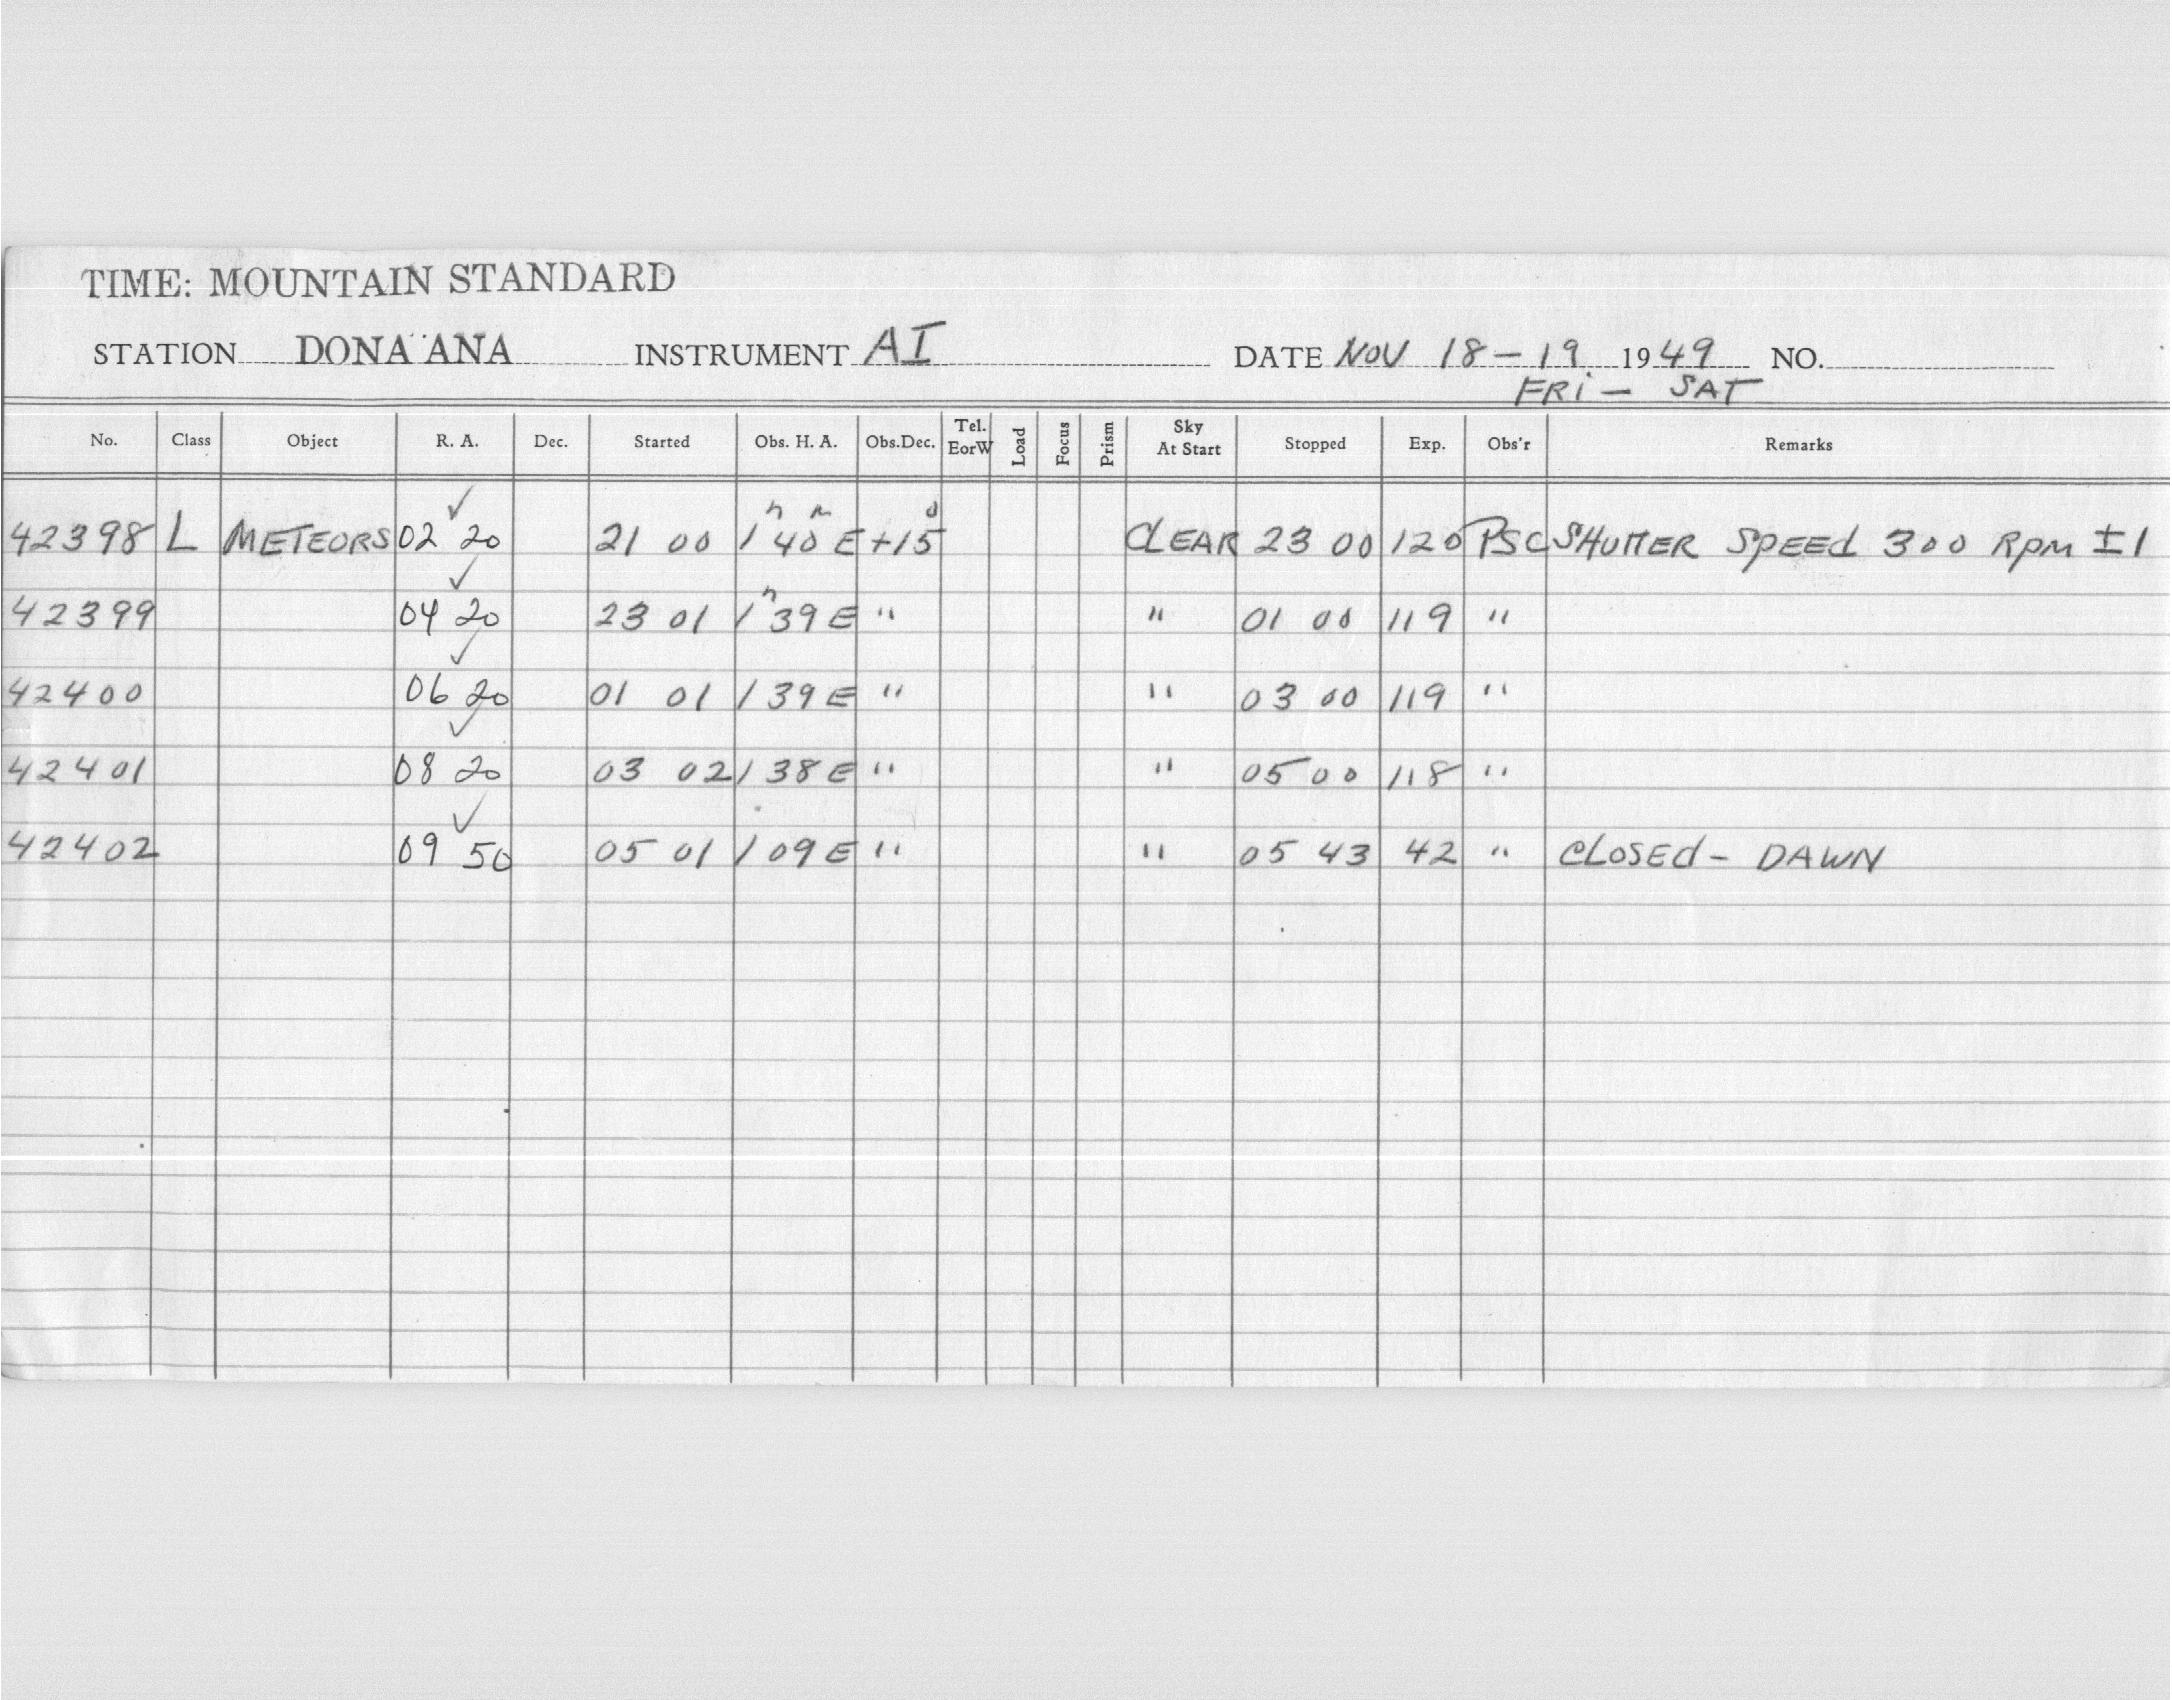 TIME: MOUNTAIN STANDARD
STATION DONA ANA INSTRUMENT AI DATE NOV 18-19 1949 NO.
FRI - SAT
No. Class Object R. A. Dec. Started Obs. H. A. Obs.Dec. Tel. EorW Load Focus Prism Sky At Start Stopped Exp. Obs'r Remarks
42398 L METEORS 02 20 ✓ 21 00 1ʰ 40ᵐ E +15° CLEAR 23 00 120 PSC SHUTTER SPEED 300 RPM ±1
42399 04 20 ✓ 23 01 1ʰ 39 E " " 01 00 119 "
42400 06 20 ✓ 01 01 1 39 E " " 03 00 119 "
42401 08 20 ✓ 03 02 1 38 E " " 05 00 118 "
42402 09 50 ✓ 05 01 1 09 E " " 05 43 42 " CLOSED - DAWN